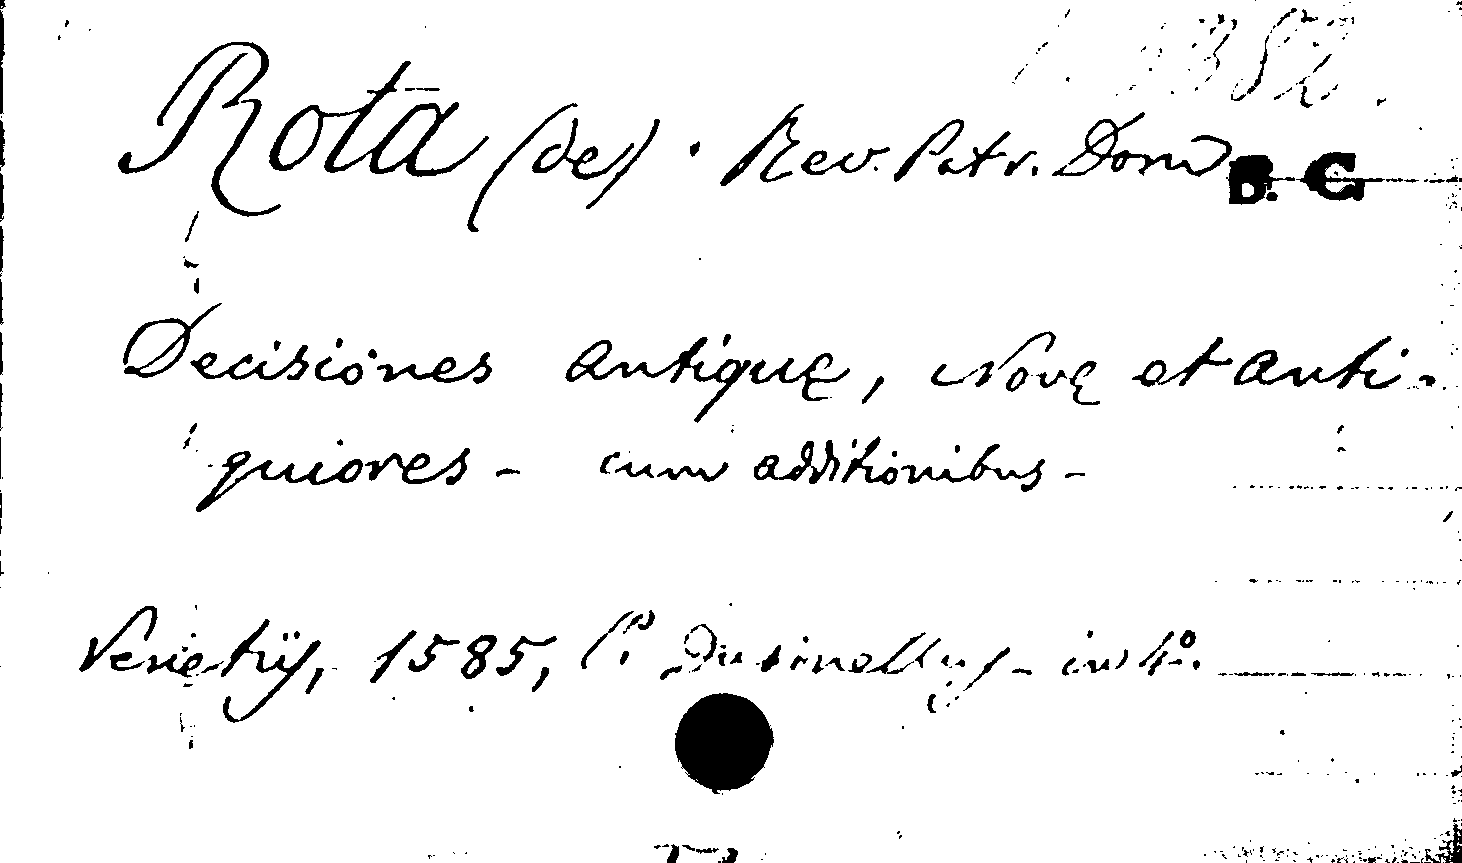 Rota (de). Rev. Patr. Dom B. C.
Decisiones antiquę, Novę et anti-
quiores - cum additionibus -
Venetiÿs, 1585, P. Dusinellus - in 4º.